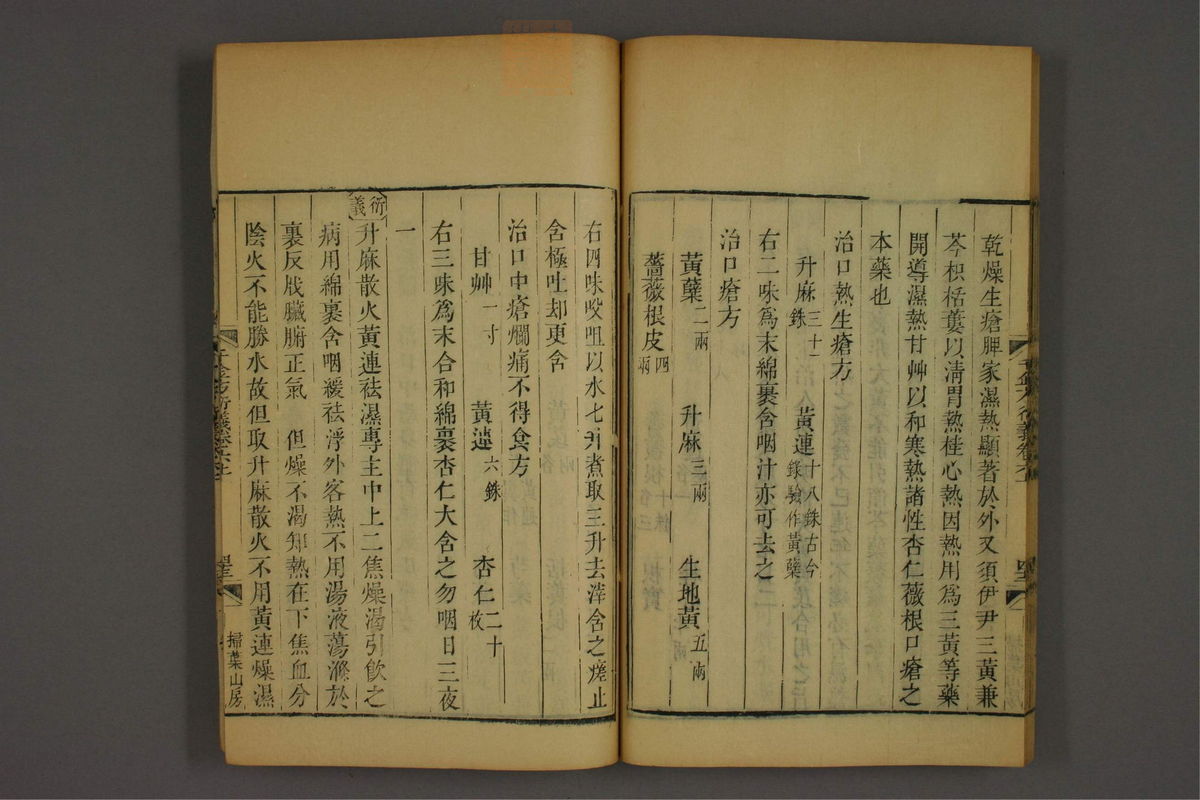 乾燥生瘡脾家濕熱顯著於外又須伊尹三黃兼
芩枳栝蔞以淸胃熱桂心熱因熱用爲三黃等藥
開導濕熱甘艸以和寒熱諸性杏仁薇根口瘡之
本藥也
治口熱生瘡方
升麻三十銖 黃連十八銖古今錄驗作黃蘗
右二味爲末綿裹含咽汁亦可去之
治口瘡方
黃蘗二兩 升麻三兩 生地黃五兩
薔薇根皮四兩
右四味㕮咀以水七升煮取三升去滓含之瘥止
含極吐却更含
治口中瘡爛痛不得食方
甘艸一寸 黃連六銖 杏仁二十枚
右三味爲末合和綿裹杏仁大含之勿咽日三夜
一
衍義
升麻散火黃連祛濕專主中上二焦燥渴引飮之
病用綿裹含咽緩祛浮外客熱不用湯液蕩滌於
裏反戕臟腑正氣 但燥不渴知熱在下焦血分
陰火不能勝水故但取升麻散火不用黃連燥濕
掃葉山房